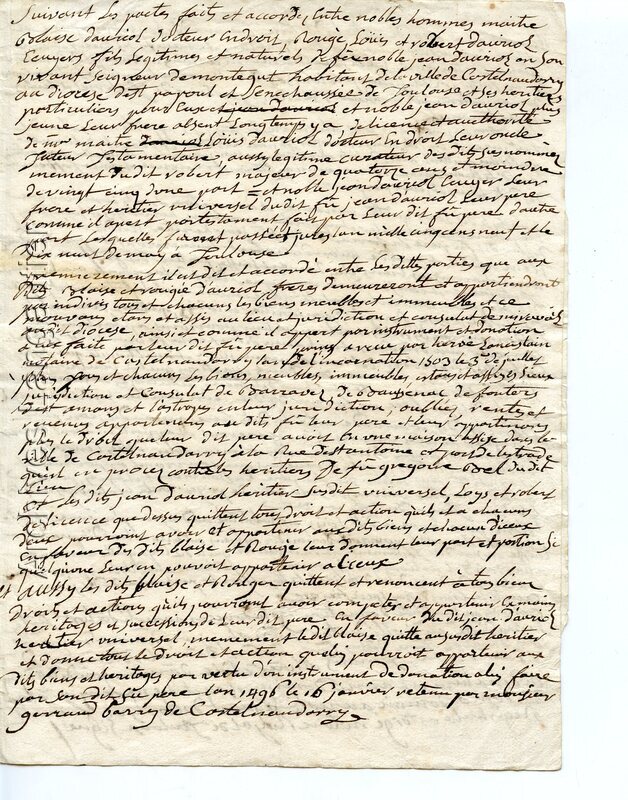 Suivant les pactes faits et accordes Entre nobles hommes maitre
Blaise dauriol docteur Endroit Rouge Loüis et robert dauriol
Ecuyers fils Legitimes et naturels de fû noble jean dauriol en son
vivant seigneur de montegut habitant de la ville de Castelnaudarry
au diocese de st papoul et senechaussée de Toulouse et ses heritiers
particuliers pour eux et jean dauriol et noble jean dauriol plus
jeune Leur frere absent Longtemps y a de licence et authorité
de mre maitre Loüis dauriol docteur En droit Leur oncle
Tuteur Testamentaire, aussy legitime curateur des dits susnommes
mement du dit robert majeur de quatorze ans et moindre
de vingt cinq dune part = et noble jean dauriol Ecuyer Leur
frere et heritier universel du dit fû jean dauriol Leur pere
comme il apert par testament fait par Leur dit fû pere dautre
part Lesquelles furent passées jures lan mille cinq cens neuf et le
dix huit de may a Toulouse
premierement il est dit et accordé entre Les dittes parties que aux
dits Blaise et rougé dauriol freres demeureront et appartiendront
par indivis tous et chacuns les biens meubles et immeubles et ce
pouvans etans et assis au lieu et jurisdiction et consulat de
dit diocese ainsi et comme il appert par instrument et donation
a eux faite par leur dit fû pere par hervé
notaire de Castelnaudarry lan de l'incarnation 1503 le 3e de juillet
plus tous et chacuns les biens, meubles, immeubles, estans et assis es Lieux
jurisdiction et Consulat de Barravet, de Baussenac de fonters
et en leur jurisdiction, oublies, rentes et
revenus appartenens au dit fû leur pere et leur appartenans
plus le droit que leur dit pere avoit En une maison assise dans la
ville de Castelnaudarry a la Rue de st antoine
quest en proces contre les heritiers de fû gregoire du dit
Lieu
et Les dits jean dauriol heritier susdit universel, Loys et robert
de licence que dessus quittent tous droit et action quils et a chacuns
deux pourroient avoir et appartenir aux dits biens et chacun diceux
en faveur des dits blaise et Rouge leur donnent leur part et portion si
quelquune Leur en pouvoit appartenir a iceux
et aussy les dits blaise et Rouger quittent et renoncent a tous biens
droits et actions quils pourroient avoir competer et appartenir Es mains
heritages et succession de Leur dit pere En faveur du dit jean dauriol
heritier universel, memement le dit blaise quitte au susdit heritier
et donne tous le droit et action quil pourroit appartenir aux
dits biens et heritages par vertu d'un instrument de donation a luy faite
par son dit fû pere lan 1496 le 16 janvier retenu par monsieur
gerraud barry de Castelnaudarry